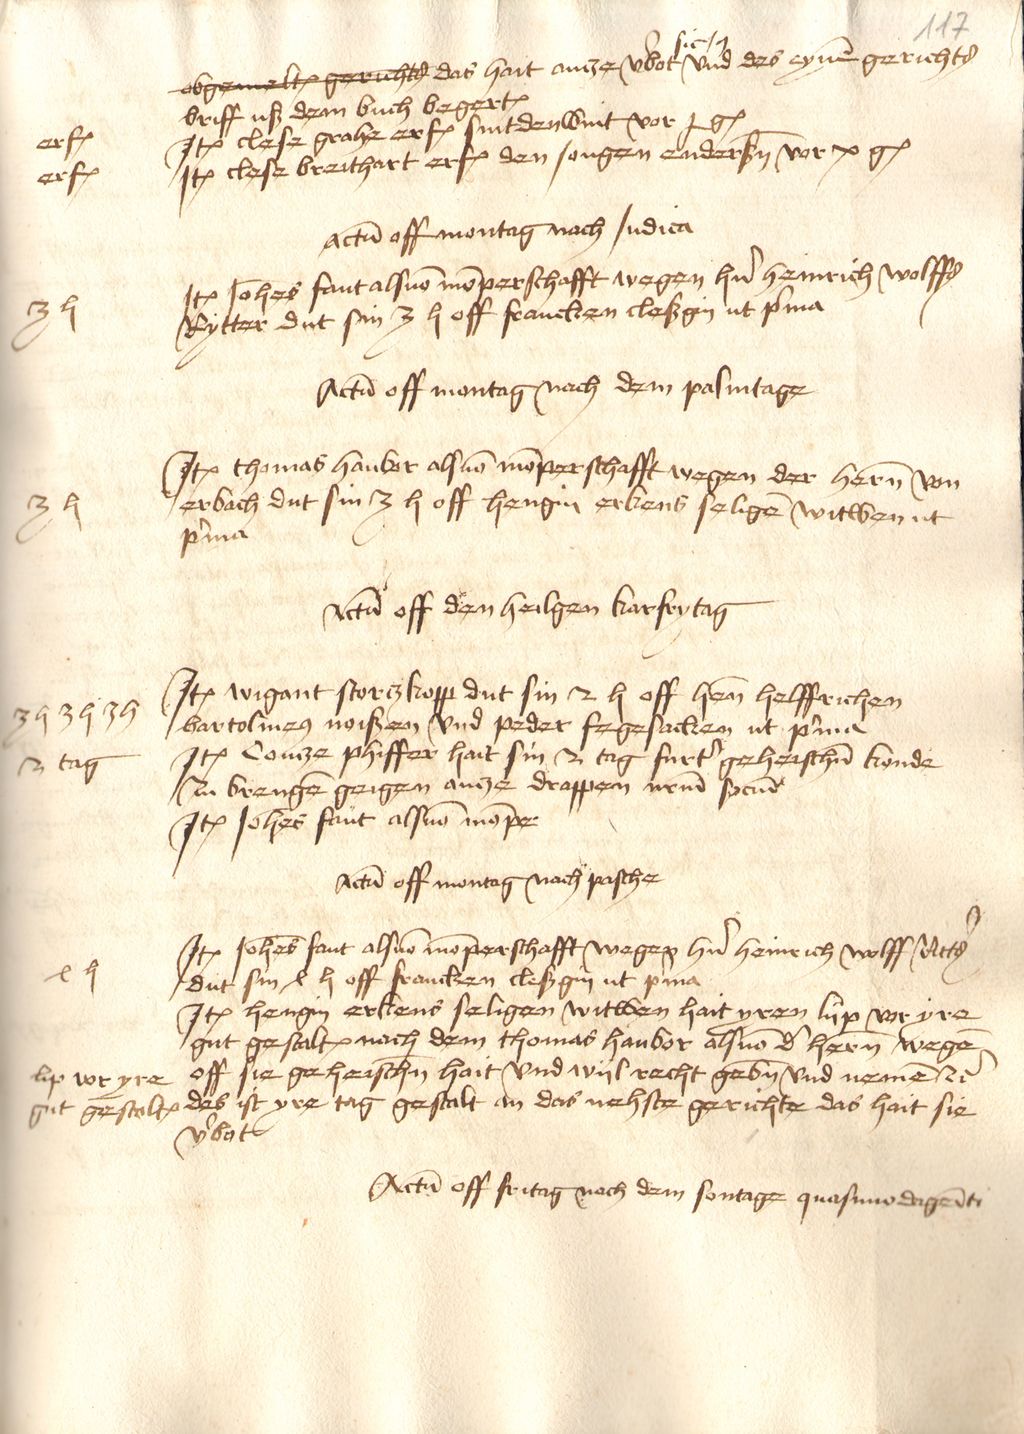 117
sic/1
obgemelt gerichts das hait antze v'bot vnd des eynen gerichts
briff uß dem buch begert
erf It clese grahe erf suitdenwint vor 1 g
erf It clese breithart erf den jongen enderßn vor x g
Actu off montag nach Judica
3 h It Johes faut alsuo moperschafft wegen hn heinrich wolffs
Rytter dut sin 3 h off francken cleßgin ut p'ma
Actu off montag nach dem palmtage
It thomas haubor alsuo moperschafft wegen der hern von
3 h erbach dut sin 3 h off hengin erkens selige witwen ut
p'ma
Actu off den heilgen karfrytag
It wigant stortzkopp dut sin 2 h off hen helffrichen
3 h 3 h 3 h bartolmeus noißen vnd peder fegesacken ut p'ma
2 tag It Contze phiffer hait sin 2 tag furt' geheischn konde
zu brenge geigen antze drappen
It Johes faut alsuo mope
Actu off montag nach pasche
It Johes faut alsuo moperschafft wegen hn heinrich wolff Ritt'
1 h dut sin 1 h off francken cleßgin ut p'ma
It hengin erkens seligen witwen hait yren lip vor yre
gut gestalt nach dem thomas haubor alsuo d' hern wege
lip vor yre off sie geheischn hait vnd wijl recht gebn vnd neme
gut gestalt des ist yre tag gestalt an das nehste gerichte das hait sie
v'bot
Actu off fritag nach dem sontage quasimodogeniti